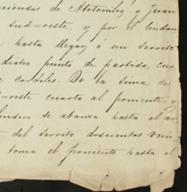 haciendas de Atotonilco y Juan
sud-oeste, y por el lindero
hasta llegar a un cerrito
dicho punto de partida, cua
de cordeles. De la cima de
oeste cuarto al poniente, y
lindero se abanza hasta el ar
del cerrito doscientos vein
toma el poniente hasta el